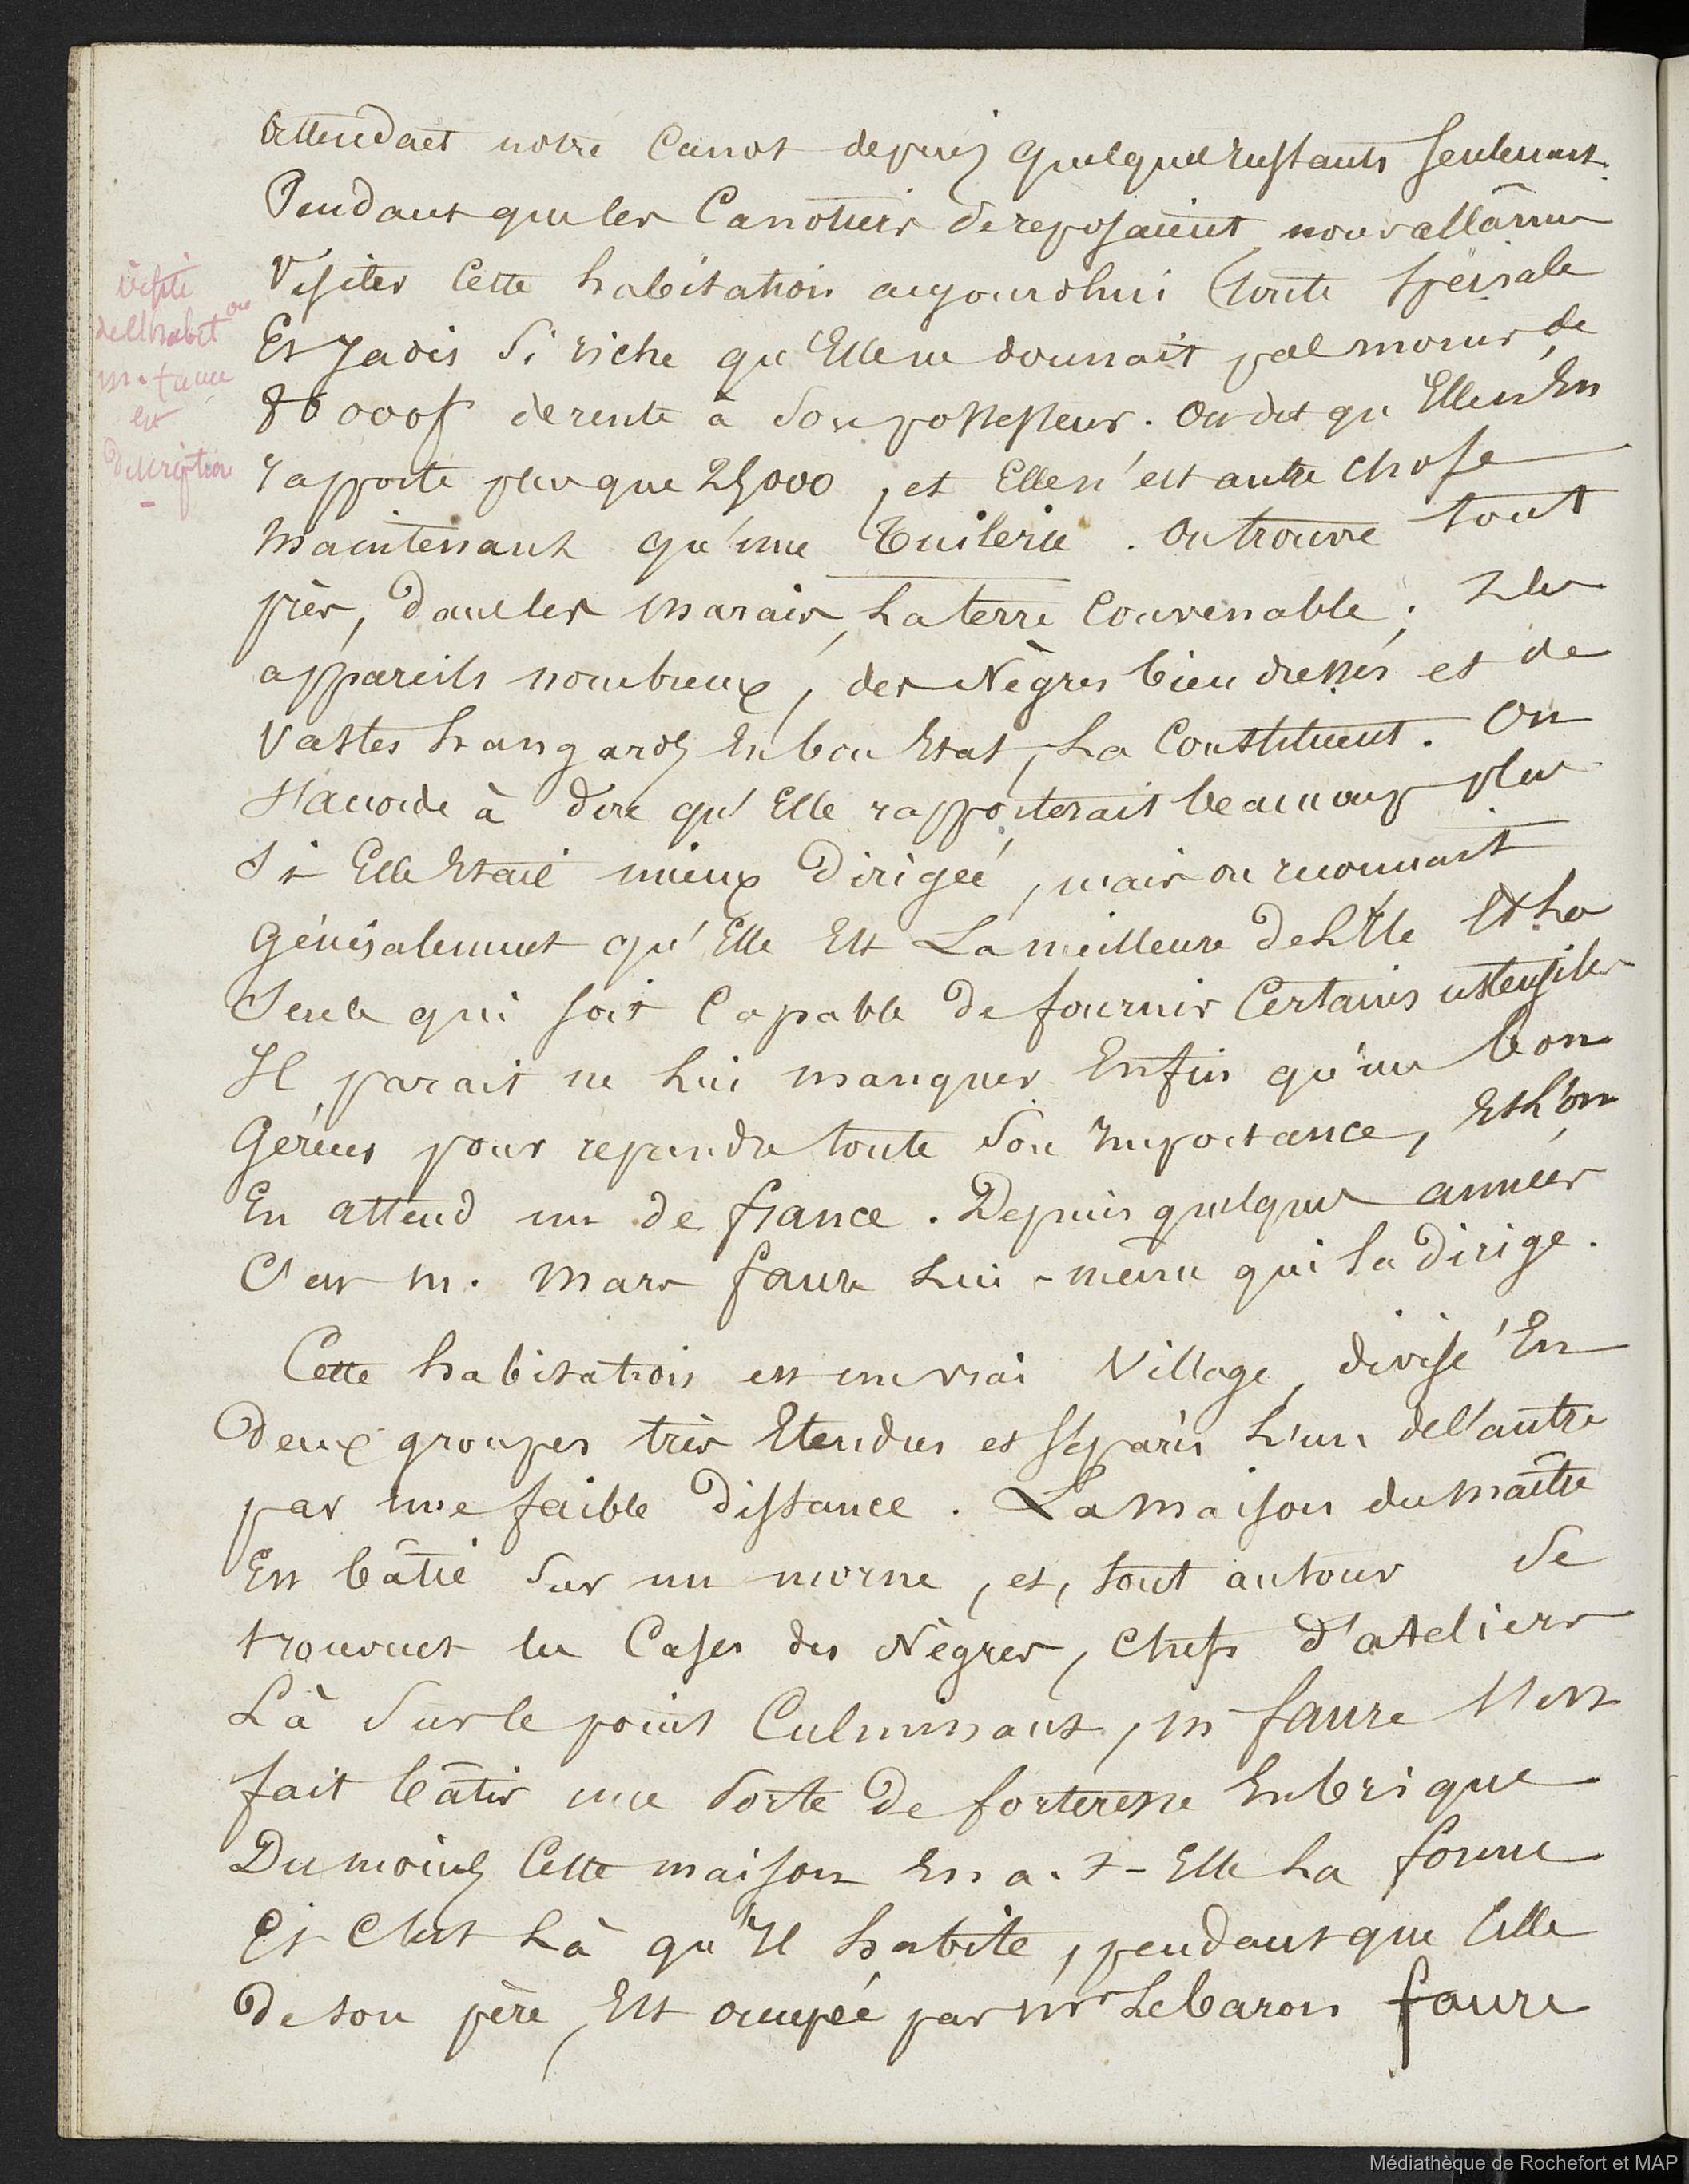 Attendait notre Canot depuis quelques Instants seulement.
Pendant que les Canotiers se reposaient, nous allâmes
visite
de l'habiton
m. faure
et
description
-
Visiter Cette habitation aujourdhui toute speciale
Et Jadis si riche qu'Elle ne donnait pas moins de
80 000f de rente à son possesseur. On dit qu'Elle n'En
rapporte plus que 25000, et Elle n'est autre chose
Maintenant qu'une Tuilerie. On trouve tout
près, dans les marais, La terre Convenable; Des
appareils nombreux, des Nègres bien dressés et de
Vastes hangards En bon Etat, La Constituent. On
s'accorde à dire qu'Elle rapporterait beaucoup plus
si Elle Etait mieux Dirigée, mais on reconnait
Généralement qu'Elle Est La meilleure de L'Ile Et La
Seule qui soit Capable de fournir Certains ustensiles
Il parait ne Lui manquer Enfin qu'un bon
Gérant pour reprendre toute son Importance, Et L'on
En attend un de france. Depuis quelques années
C'est m. Marc faure Lui-même qui la Dirige.
Cette habitation est un vrai Village, divisé En
Deux groupes très Etendus et séparés L'un de l'autre
par une faible Distance. La Maison du Maître
Est bâtie sur un morne, et, tout autour se
trouvent les Cases des Nègres, chefs d'ateliers
Là sur le point Culminant, m faure s'est
fait bâtir une sorte de forteresse En brique
Du moins Cette maison En a-t-Elle La forme
Et C'est Là qu'Il habite, pendant que Celle
de son père, Est occupée par mr Lebaron faure
Médiathèque de Rochefort et MAP